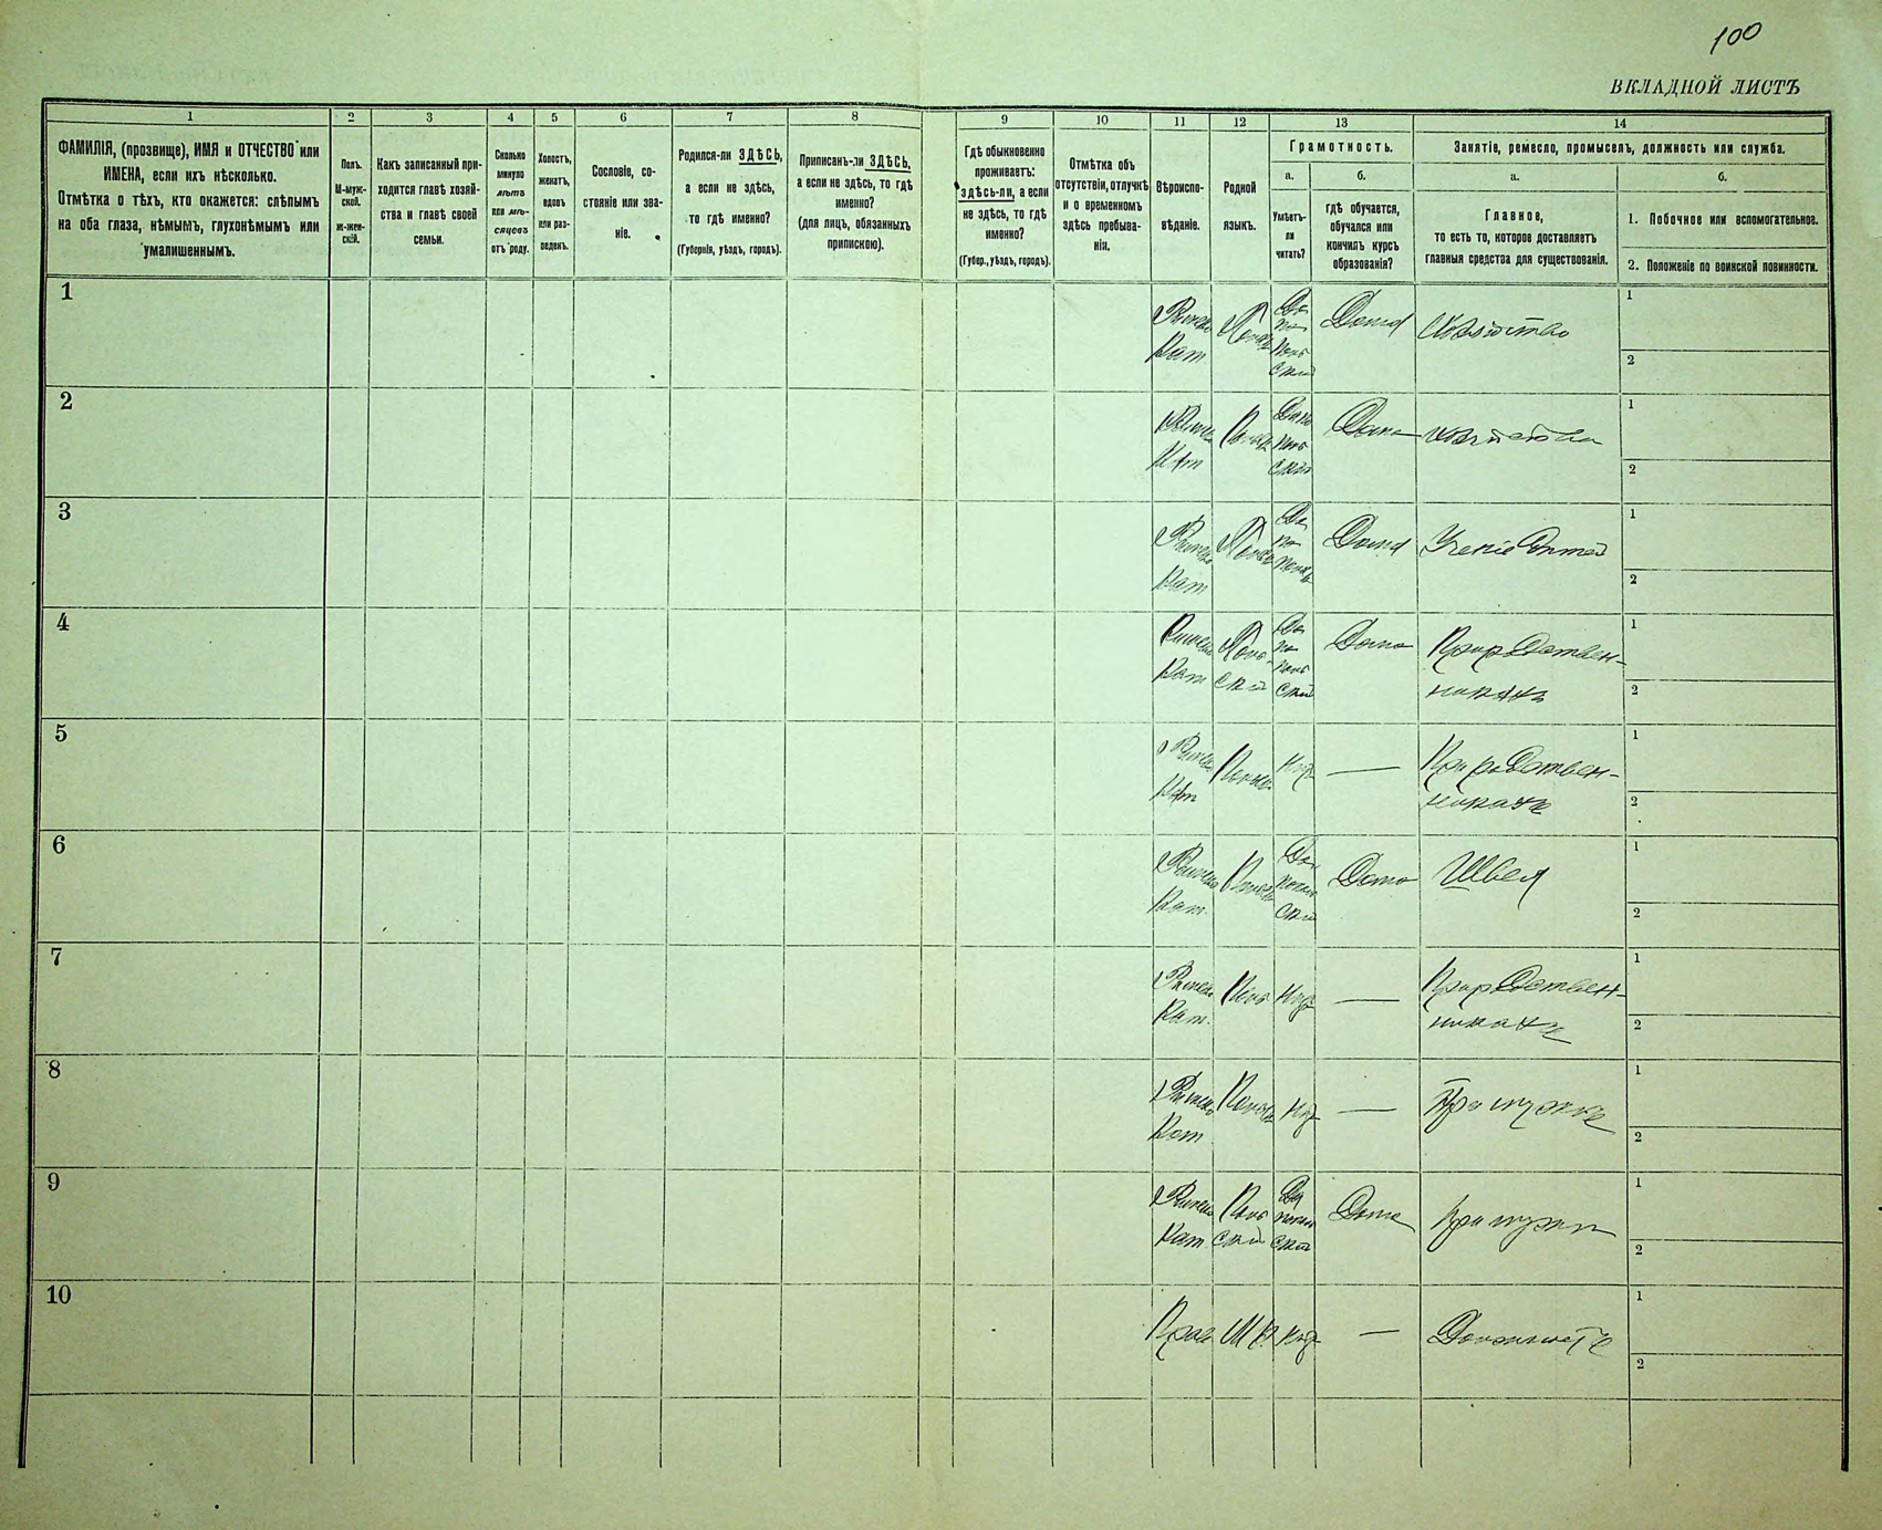 100
ВКЛАДНОЙ ЛИСТЪ
1 2 3 4 5 6 7 8 9 10 11 12 13 14
ФАМИЛІЯ, (прозвище), ИМЯ и ОТЧЕСТВО или
ИМЕНА, если ихъ нѣсколько.
Отмѣтка о тѣхъ, кто окажется: слѣпымъ
на оба глаза, нѣмымъ, глухонѣмымъ или
умалишеннымъ.
Полъ.
М-муж-
ской.
ж-жен-
скій.
Какъ записанный при-
ходится главѣ хозяй-
ства и главѣ своей
семьи.
Сколько
минуло
лѣтъ
или мѣ-
сяцевъ
отъ роду.
Холостъ,
женатъ,
вдовъ
или раз-
веденъ.
Сословіе, со-
стояніе или зва-
ніе.
Родился-ли ЗДѢСЬ,
а если не здѣсь,
то гдѣ именно?
(Губернія, уѣздъ, городъ).
Приписанъ-ли ЗДѢСЬ,
а если не здѣсь, то гдѣ
именно?
(для лицъ, обязанныхъ
припискою).
Гдѣ обыкновенно
проживаетъ:
здѣсь-ли, а если
не здѣсь, то гдѣ
именно?
(Губер., уѣздъ, городъ).
Отмѣтка объ
отсутствіи, отлучкѣ
и о временномъ
здѣсь пребыва-
ніи.
Вѣроиспо-
вѣданіе.
Родной
языкъ.
Грамотность.
а.
Умѣетъ-
ли
читать?
б.
гдѣ обучается,
обучался или
кончилъ курсъ
образованія?
Занятіе, ремесло, промыселъ, должность или служба.
а.
Главное,
то есть то, которое доставляетъ
главныя средства для существованія.
б.
1. Побочное или вспомогательное.
2. Положеніе по воинской повинности.
1
Кат
Дома
1
2
2
Кат
Дома
1
2
3
Кат
Дома
1
2
4
Кат
Поль
скій
Да
по
поль
скій
Дома
При родствен-
никахъ
1
2
5
Кат
Нѣт
—
При родствен-
никахъ
1
2
6
Кат.
Дома
Швея
1
2
7
Кат.
Нѣт
—
При родствен-
никахъ
1
2
8
Кат
Нѣт
—
При мужѣ
1
2
9
Кат
Поль
скій
Дома
При мужѣ
1
2
10
Прав
Нѣт
—
1
2